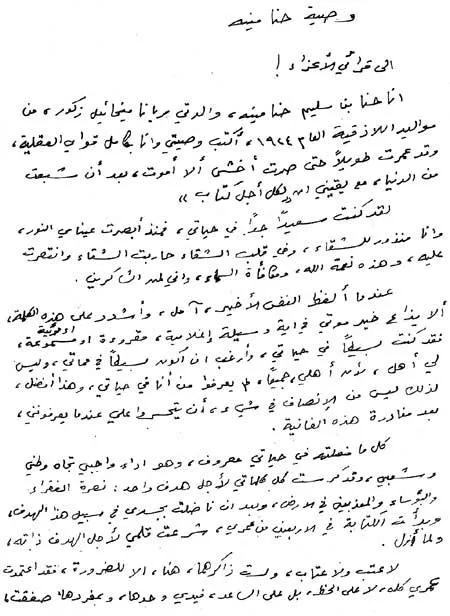 وصية حنا مينه
الى قرائي الأعزاء !
انا حنا بن سليم حنا مينه، والدتي مريانا ميخائيل زكور، من
مواليد اللاذقية العام ١٩٢٤، أكتب وصيتي وانا بكامل قواي العقلية،
وقد عمرت طويلاً حتى صرت أخشى ألا أموت، بعد أن شبعت
من الدنيا، مع يقيني انه "لكل أجل كتاب"
لقد كنت سعيداً جداً في حياتي، فمنذ أبصرت عيناي النور،
وانا منذور للشقاء، وفي قلب الشقاء حاربت الشقاء وانتصرت
عليه، وهذه نعمة الله، ومكافأة السماء، واني لمن الشاكرين.
عندما ألفظ النفس الأخير، آمل، وأشدد على هذه الكلمة،
ألا يذاع خبر موتي في أية وسيلة إعلامية، مقروءة او مسموعة، او مرئية
فقد كنت بسيطاً في حياتي، وأرغب ان أكون بسيطاً في مماتي، وليس
لي أهل، لأن أهلي، جميعاً، لم يعرفوا من أنا في حياتي، وهذا أفضل،
لذلك ليس من الإنصاف في شيء، أن يتحسروا علي عندما يعرفونني،
بعد مغادرة هذه الفانية.
كل ما فعلته في حياتي معروف، وهو اداء واجبي تجاه وطني
وشعبي، وقد كرست كل كلماتي لأجل هدف واحد: نصرة الفقراء
والبؤساء والمعذبين في الارض، وبعد ان ناضلت بجسدي في سبيل هذا الهدف،
وبدأت الكتابة في الاربعين من عمري، شرعت قلمي لأجل الهدف ذاته،
ولما أزل.
لا عتب ولا عتاب، ولست ذاكرهما، هنا، الا للضرورة، فقد اعتمدت
عمري كله، لا على الحظ، بل على الساعد، فيدي وحدها، وبمفردها صفقت،